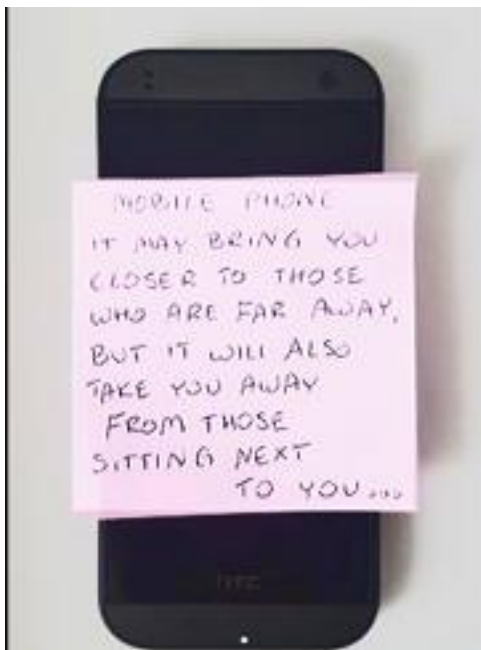 MOBILE PHONE
IT MAY BRING YOU
CLOSER TO THOSE
WHO ARE FAR AWAY,
BUT IT WILL ALSO
TAKE YOU AWAY
FROM THOSE
SITTING NEXT
TO YOU...
hTC